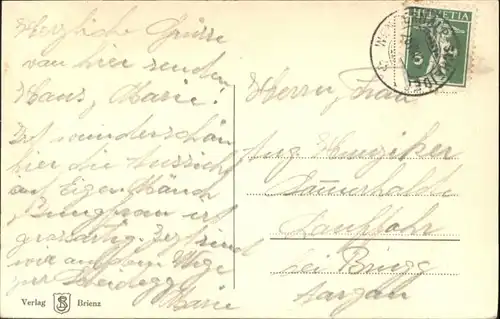 Herzliche Grüsse
von hier senden
Hans, Marie.
Ist wunderschön
hier die Aussicht
auf Eiger Mönch
Jungfrau ist
grossartig. Jetzt sind
wir auf dem Wege
zur Scheidegg
Marie
Verlag S Brienz
HELVETIA
5
Herrn, Frau
Aug Hunziker
bei Brugg
Aargau